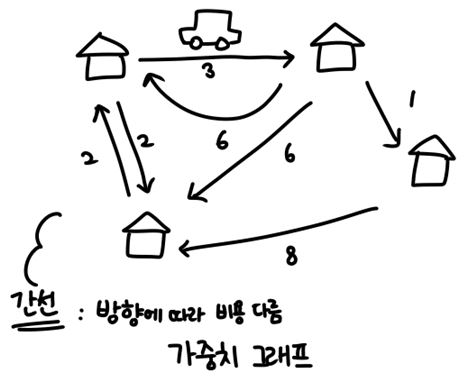 3
1
6
6
2
2
8
간선 : 방향에 따라 비용 다름
가중치 그래프